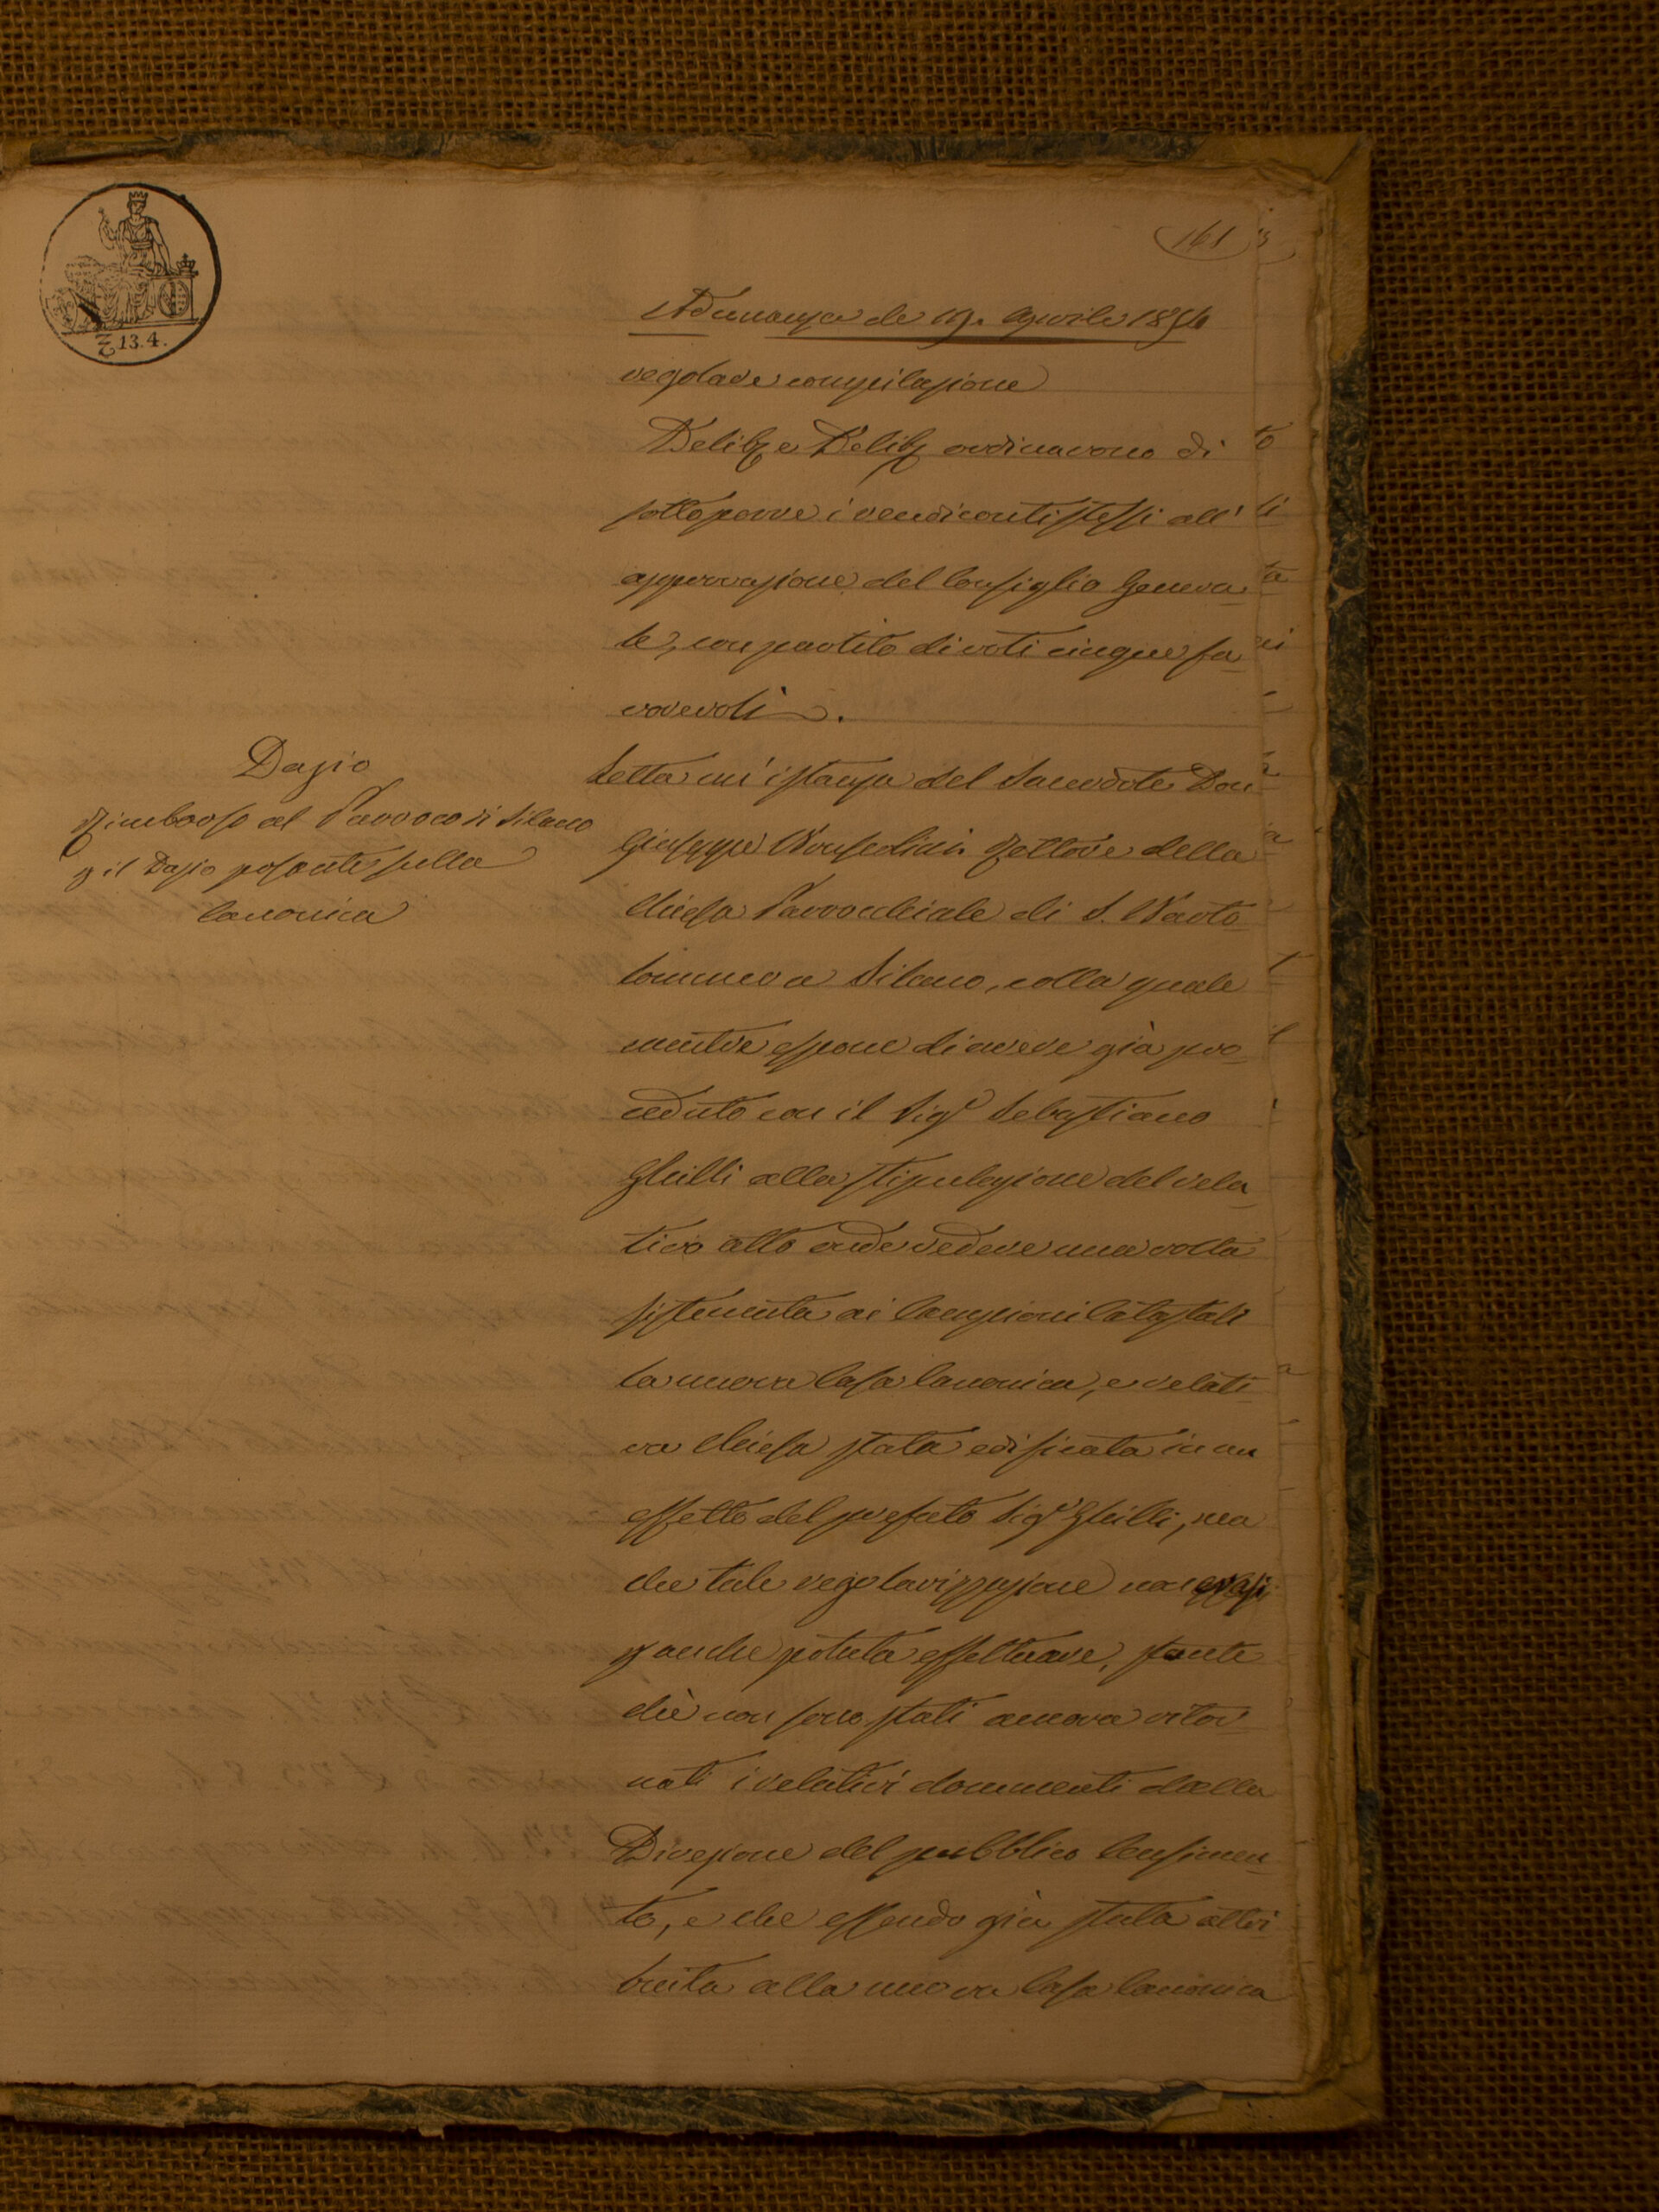 161
13.4.
Adunanza de 19. Aprile 1854
regolare compilazione
Delib.e Delib. ordinarono di
sottoporre i rendiconti stessi all'
approvazione del Consiglio Genera
le, con partito di voti cinque fa
vorevoli.
Dazio
Rimborso al Parroco di Silano
p il Dazio posante sulla
Canonica
Letta un'istanza del Sacerdote Don
Giuseppe Rettore della
Chiesa Parrocchiale di S. Barto
lommeo a Silano, colla quale
mentre espone di avere già pro
ceduto con il Sigr Sebastiano
Ghilli alla stipulazione del rela
tivo atto onde vedere una volta
sistemata ai Campioni Catastali
la nuova Casa Canonica, e relati
va Chiesa stata edificata in un
effetto del prefato Sigr Ghilli, ma
che tale regolarizzazione non
p anche potuta effettuare, stante
chè non sono stati ancora ritor
nati i relativi documenti dalla
Direzione del pubblico Censimen
to, e che essendo già stata attri
buita alla nuova Casa Canonica